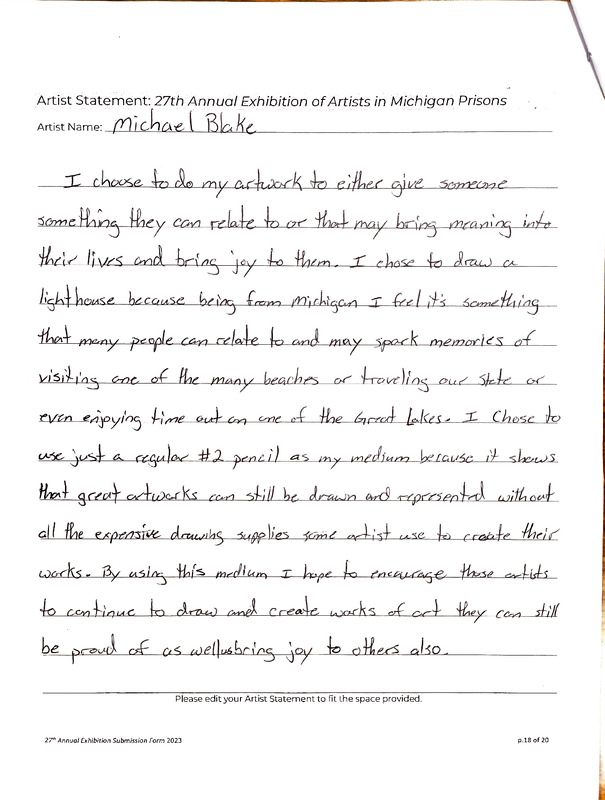 Artist Statement: 27th Annual Exhibition of Artists in Michigan Prisons
Artist Name: Michael Blake
I choose to do my artwork to either give someone
something they can relate to or that may bring meaning into
their lives and bring joy to them. I chose to draw a
lighthouse because being from Michigan I feel it's something
that many people can relate to and may spark memories of
visiting one of the many beaches or traveling our state or
even enjoying time out on one of the Great Lakes. I chose to
use just a regular #2 pencil as my medium because it shows
that great artworks can still be drawn and represented without
all the expensive drawing supplies some artist use to create their
works. By using this medium I hope to encourage those artists
to continue to draw and create works of art they can still
be proud of as wellusbring joy to others also.
Please edit your Artist Statement to fit the space provided.
27th Annual Exhibition Submission Form 2023 p.18 of 20